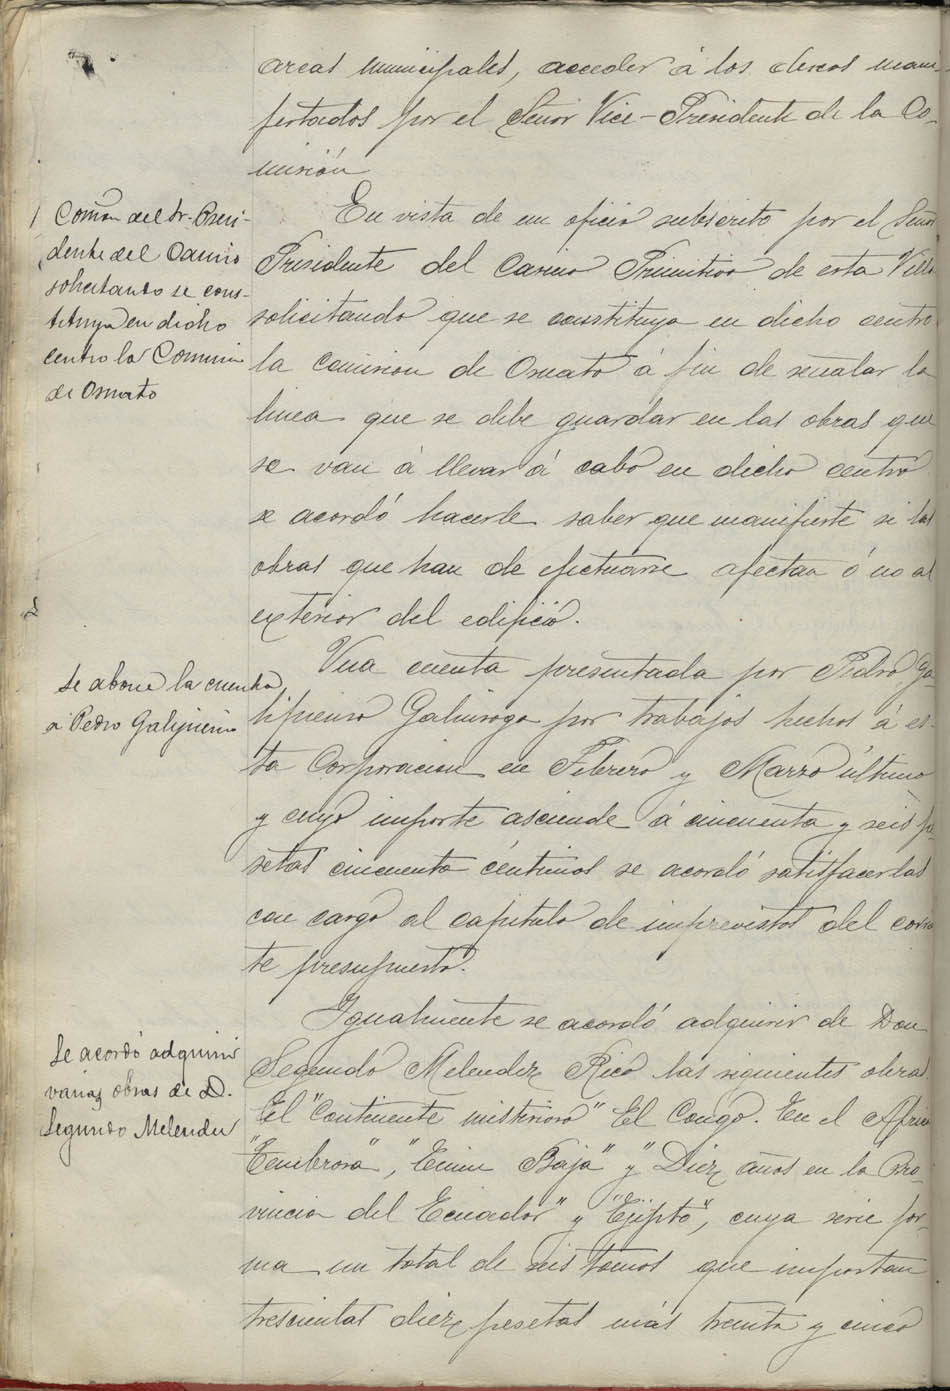 areas municipales, acceder á los deseos mani-
festados por el Señor Vice-Presidente de la Co-
misión
Comón del Sr. Presi-
dente del Casino
solicitando se cons-
tituya en dicho
centro la Comisión
de Ornato
En vista de un oficio subscrito por el Señor
Presidente del Casino Primitivo de esta Villa
solicitando que se constituya en dicho centro
la comision de Ornato á fin de señalar la
linea que se debe guardar en las obras que
se van á llevar á cabo en dicho centro
se acordó hacerle saber que manifieste si las
obras que han de efectuarse afectan ó no al
exterior del edificio.
Se abone la cuenta
a Pedro Galipienso
Una cuenta presentada por Pedro Ga-
lipienso por trabajos hechos á es-
ta Corporacion en Febrero y Marzo último
y cuyo importe asciende á cincuenta y seis pe-
setas cincuenta céntimos se acordó satisfacerlas
con cargo al capitulo de imprevistos del corrien
te presupuesto.
Se acordó adquirir
varias obras de D.
Segundo Melendez
Igualmente se acordó adquirir de Don
Segundo Melendez Rico las siguientes obras
El "Continente misterioso" El Congo. En el Africa
"Tenebrosa", "Emin Bajá" y "Diez años en la Pro-
vincia del Ecuador" y "Ejipto", cuya serie for-
ma un total de seis tomos que importan
trescientas diez pesetas más treinta y cinco